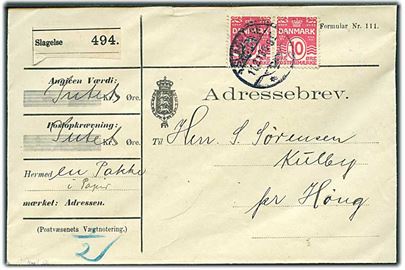 Slagelse 494.
Formular Nr. 111.
DANMARK
10
Angiven Værdi:
Intet Kr. Øre.
Postopkrævning:
Intet Kr. Øre.
Hermed en Pakke
i Papir
mærket: Adressen.
(Postvæsenets Vægtnotering.)
2
Adressebrev.
Til Herr S. Sørensen
Kulby
pr Höng